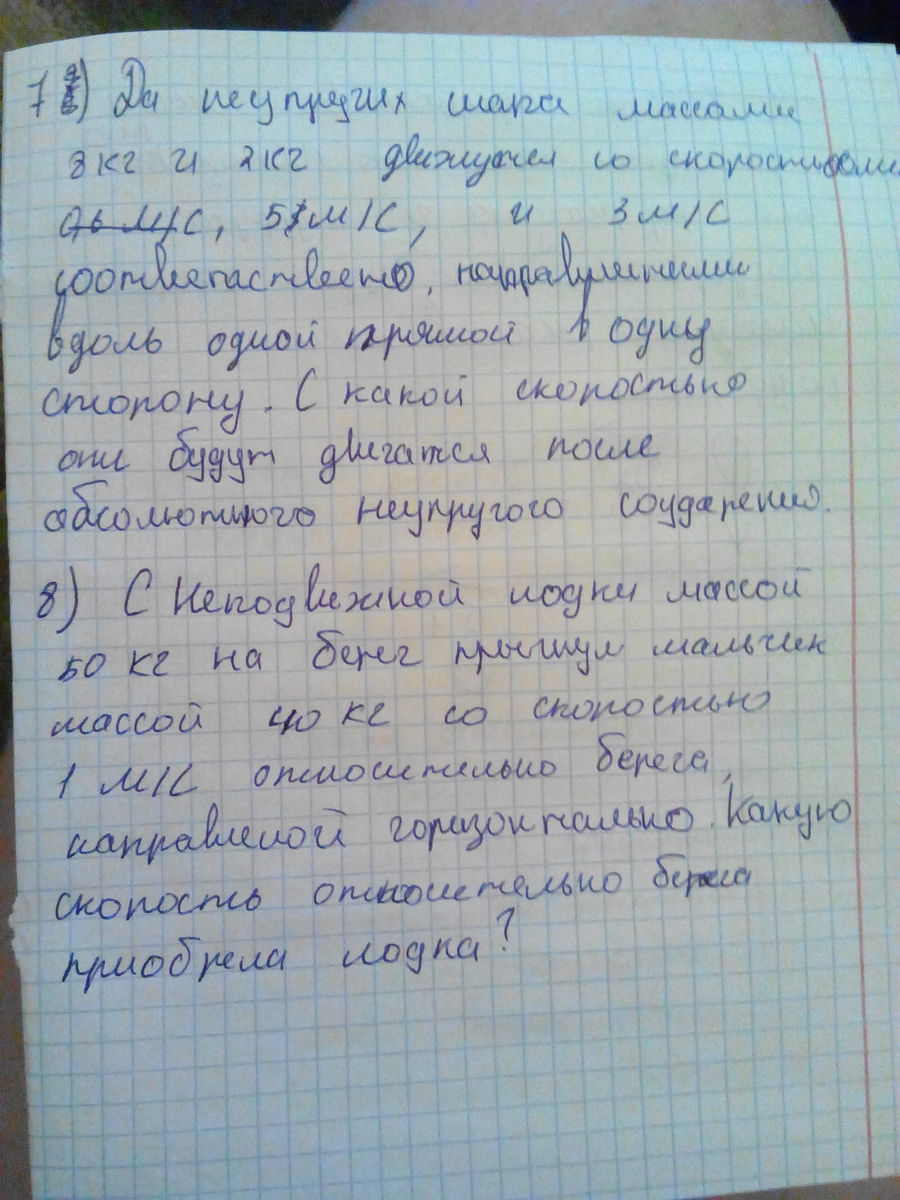 7) Да неупругих шара массами
3 кг и 2 кг движутся со скоростями
м/с, 5 м/с, и 3 м/с
соответаствето, направленными
вдоль одной прямой в одну
сторону. С какой скоростью
они будут двигатся после
абсолютного неупругого соударения.
8) С Неподвижной лодки массой
50 кг на берег прыгнул мальчик
массой 40 кг со скоростью
1 м/с относительно берега,
направленой горизонтально. Какую
скорость относительно берега
приобрела лодка?